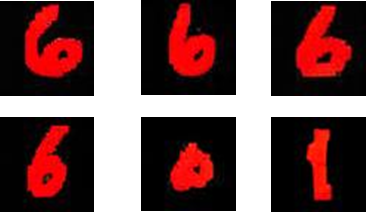 6 6 6
6 0 1